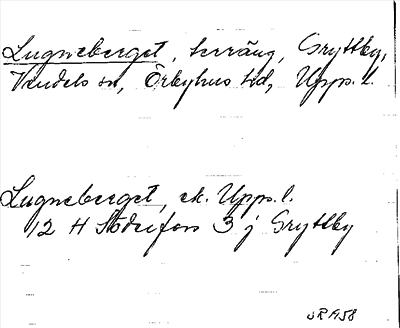 Lugneberget, terräng, Gryttby,
Vendels sn, Örbyhus hd, Upps. l.
Lugneberget, ek. Upps. l.
12 H Söderfors 3 j Gryttby
SR A58